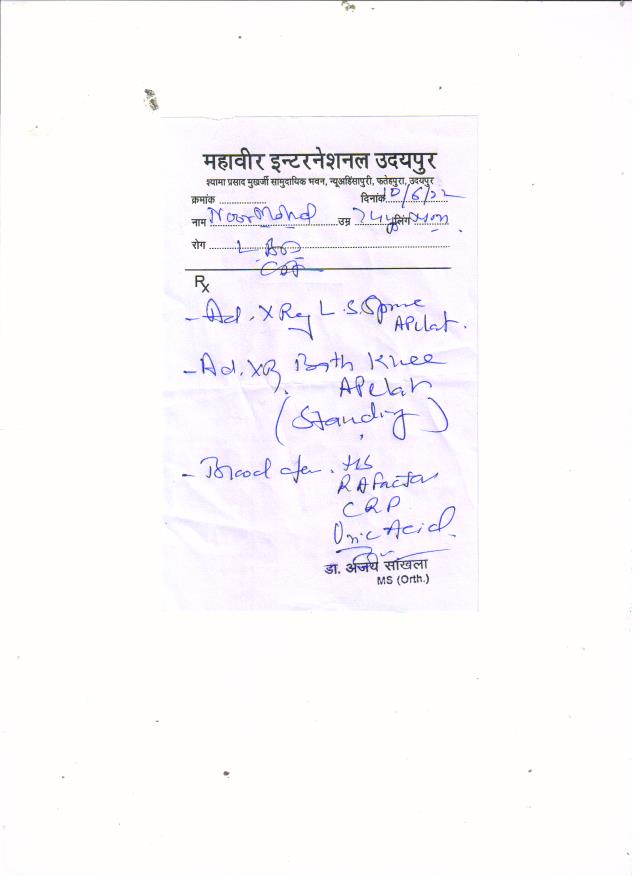 महावीर इन्टरनेशनल उदयपुर
श्यामा प्रसाद मुखर्जी सामुदायिक भवन, न्यूअहिंसापुरी, फतेहपुरा, उदयपुर
क्रमांक .................. दिनांक 10/6/22
नाम Noor Mohd उम्र लिंग
रोग L BP
Rx
- Ad. X Ray L.S. Spine
AP & Lat.
- Ad. XR Both Knee
AP & Lat
(Standing)
- Blood for
RA Factor
CRP
Uric Acid.
डा. अजय सांखला
MS (Orth.)